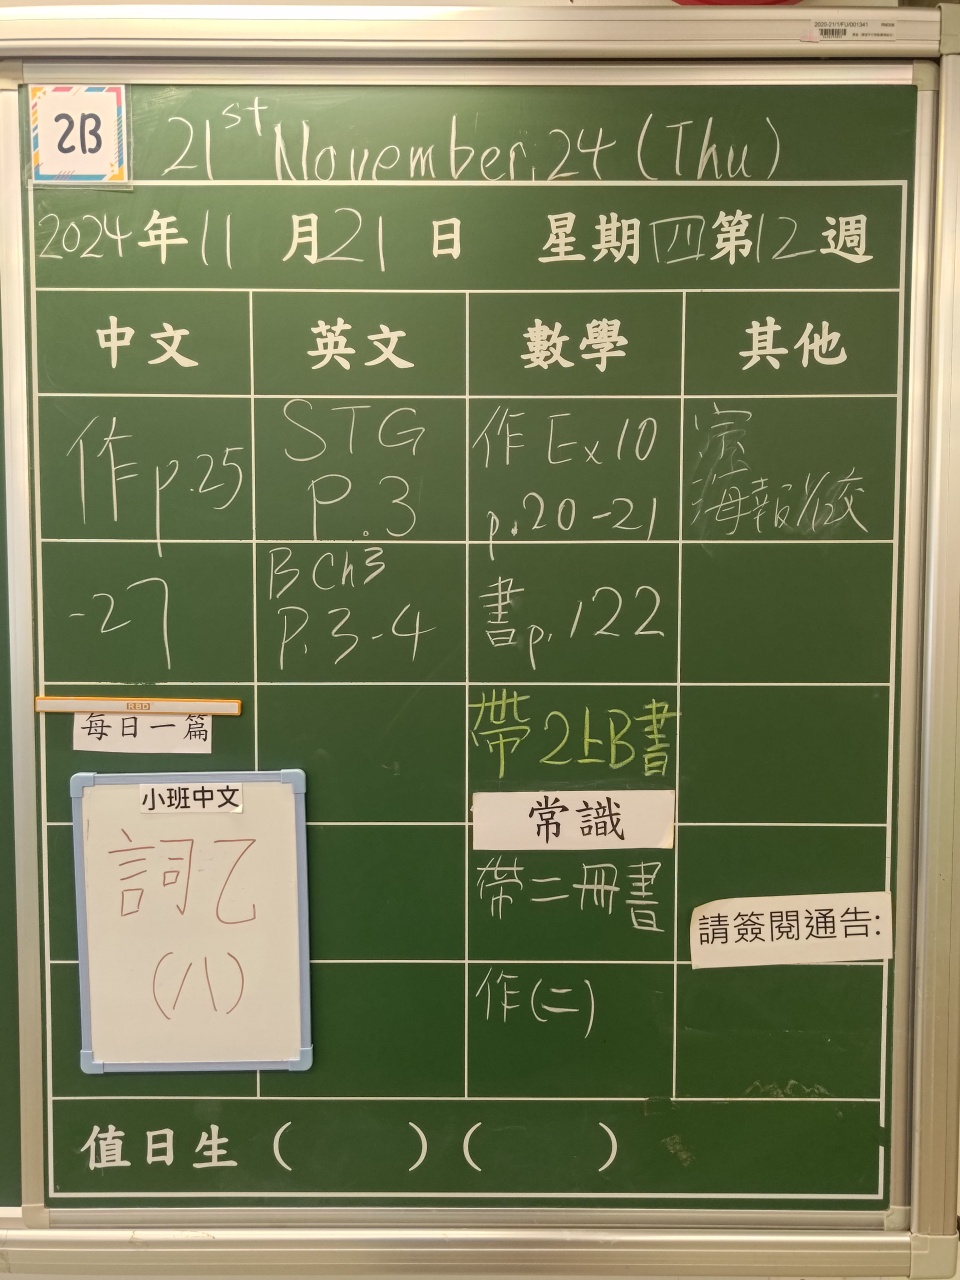 2020-21/1/FU/001341
2B
21st November. 24 (Thu)
2024年11月21日 星期四第12週
中文 英文 數學 其他
作p.25
-27
STG
P.3
B Ch3
P.3-4
作 Ex10
p.20-21
書p.122
帶2上B書
海報
每日一篇
KBD
小班中文
詞乙
(八)
常識
帶二冊書
作(二)
請簽閱通告:
值日生 ( ) ( )